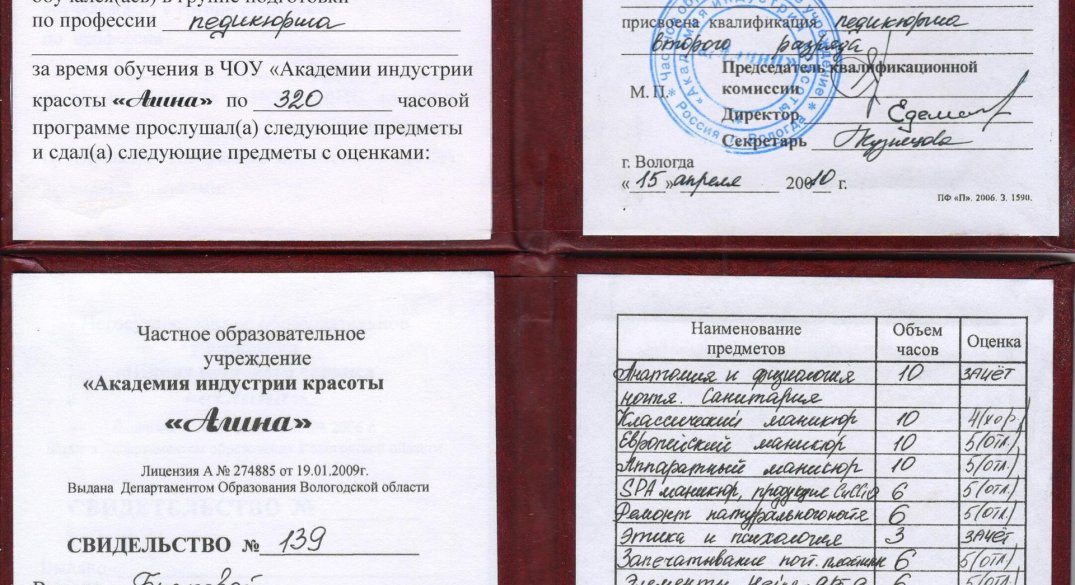 обучался(ась) в группе подготовки
по профессии педикюрша
за время обучения в ЧОУ «Академии индустрии
красоты «Ашна» по 320 часовой
программе прослушал(а) следующие предметы
и сдал(а) следующие предметы с оценками:
присвоена квалификация педикюрша
второго разряда
Председатель квалификационной
комиссии
М. П.
Директор
Секретарь Кузнецова
г. Вологда
«15» апреля 20010 г.
ПФ «П». 2006. З. 1590.
Россия г. Вологда
Частное образовательное
учреждение
«Академия индустрии красоты
«Ашна»
Лицензия А № 274885 от 19.01.2009г.
Выдана Департаментом Образования Вологодской области
СВИДЕТЕЛЬСТВО № 139
Наименование предметов Объем часов Оценка
Анатомия и физиология 10 зачёт
ногтя. Санитария
Классический маникюр 10 4/хор.)
Европейский маникюр 10 5(отл.)
Аппаратный маникюр 10 5/отл.)
SPA маникюр, продукция CuCCiO 6 5(отл.)
Ремонт натурального ногтя 6 5(отл.)
Этика и психология 3 зачёт
Запечатывание ногт. пластин 6 5(отл.)
Элементы 6 5(отл.)